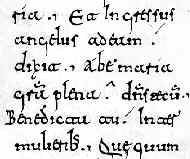 ria . Et ingressus
angelus ad eam .
dixit . ave maria
gr̄a plena . dn̄s tecū .
Benedicta tu in
mulierib; . Que quum